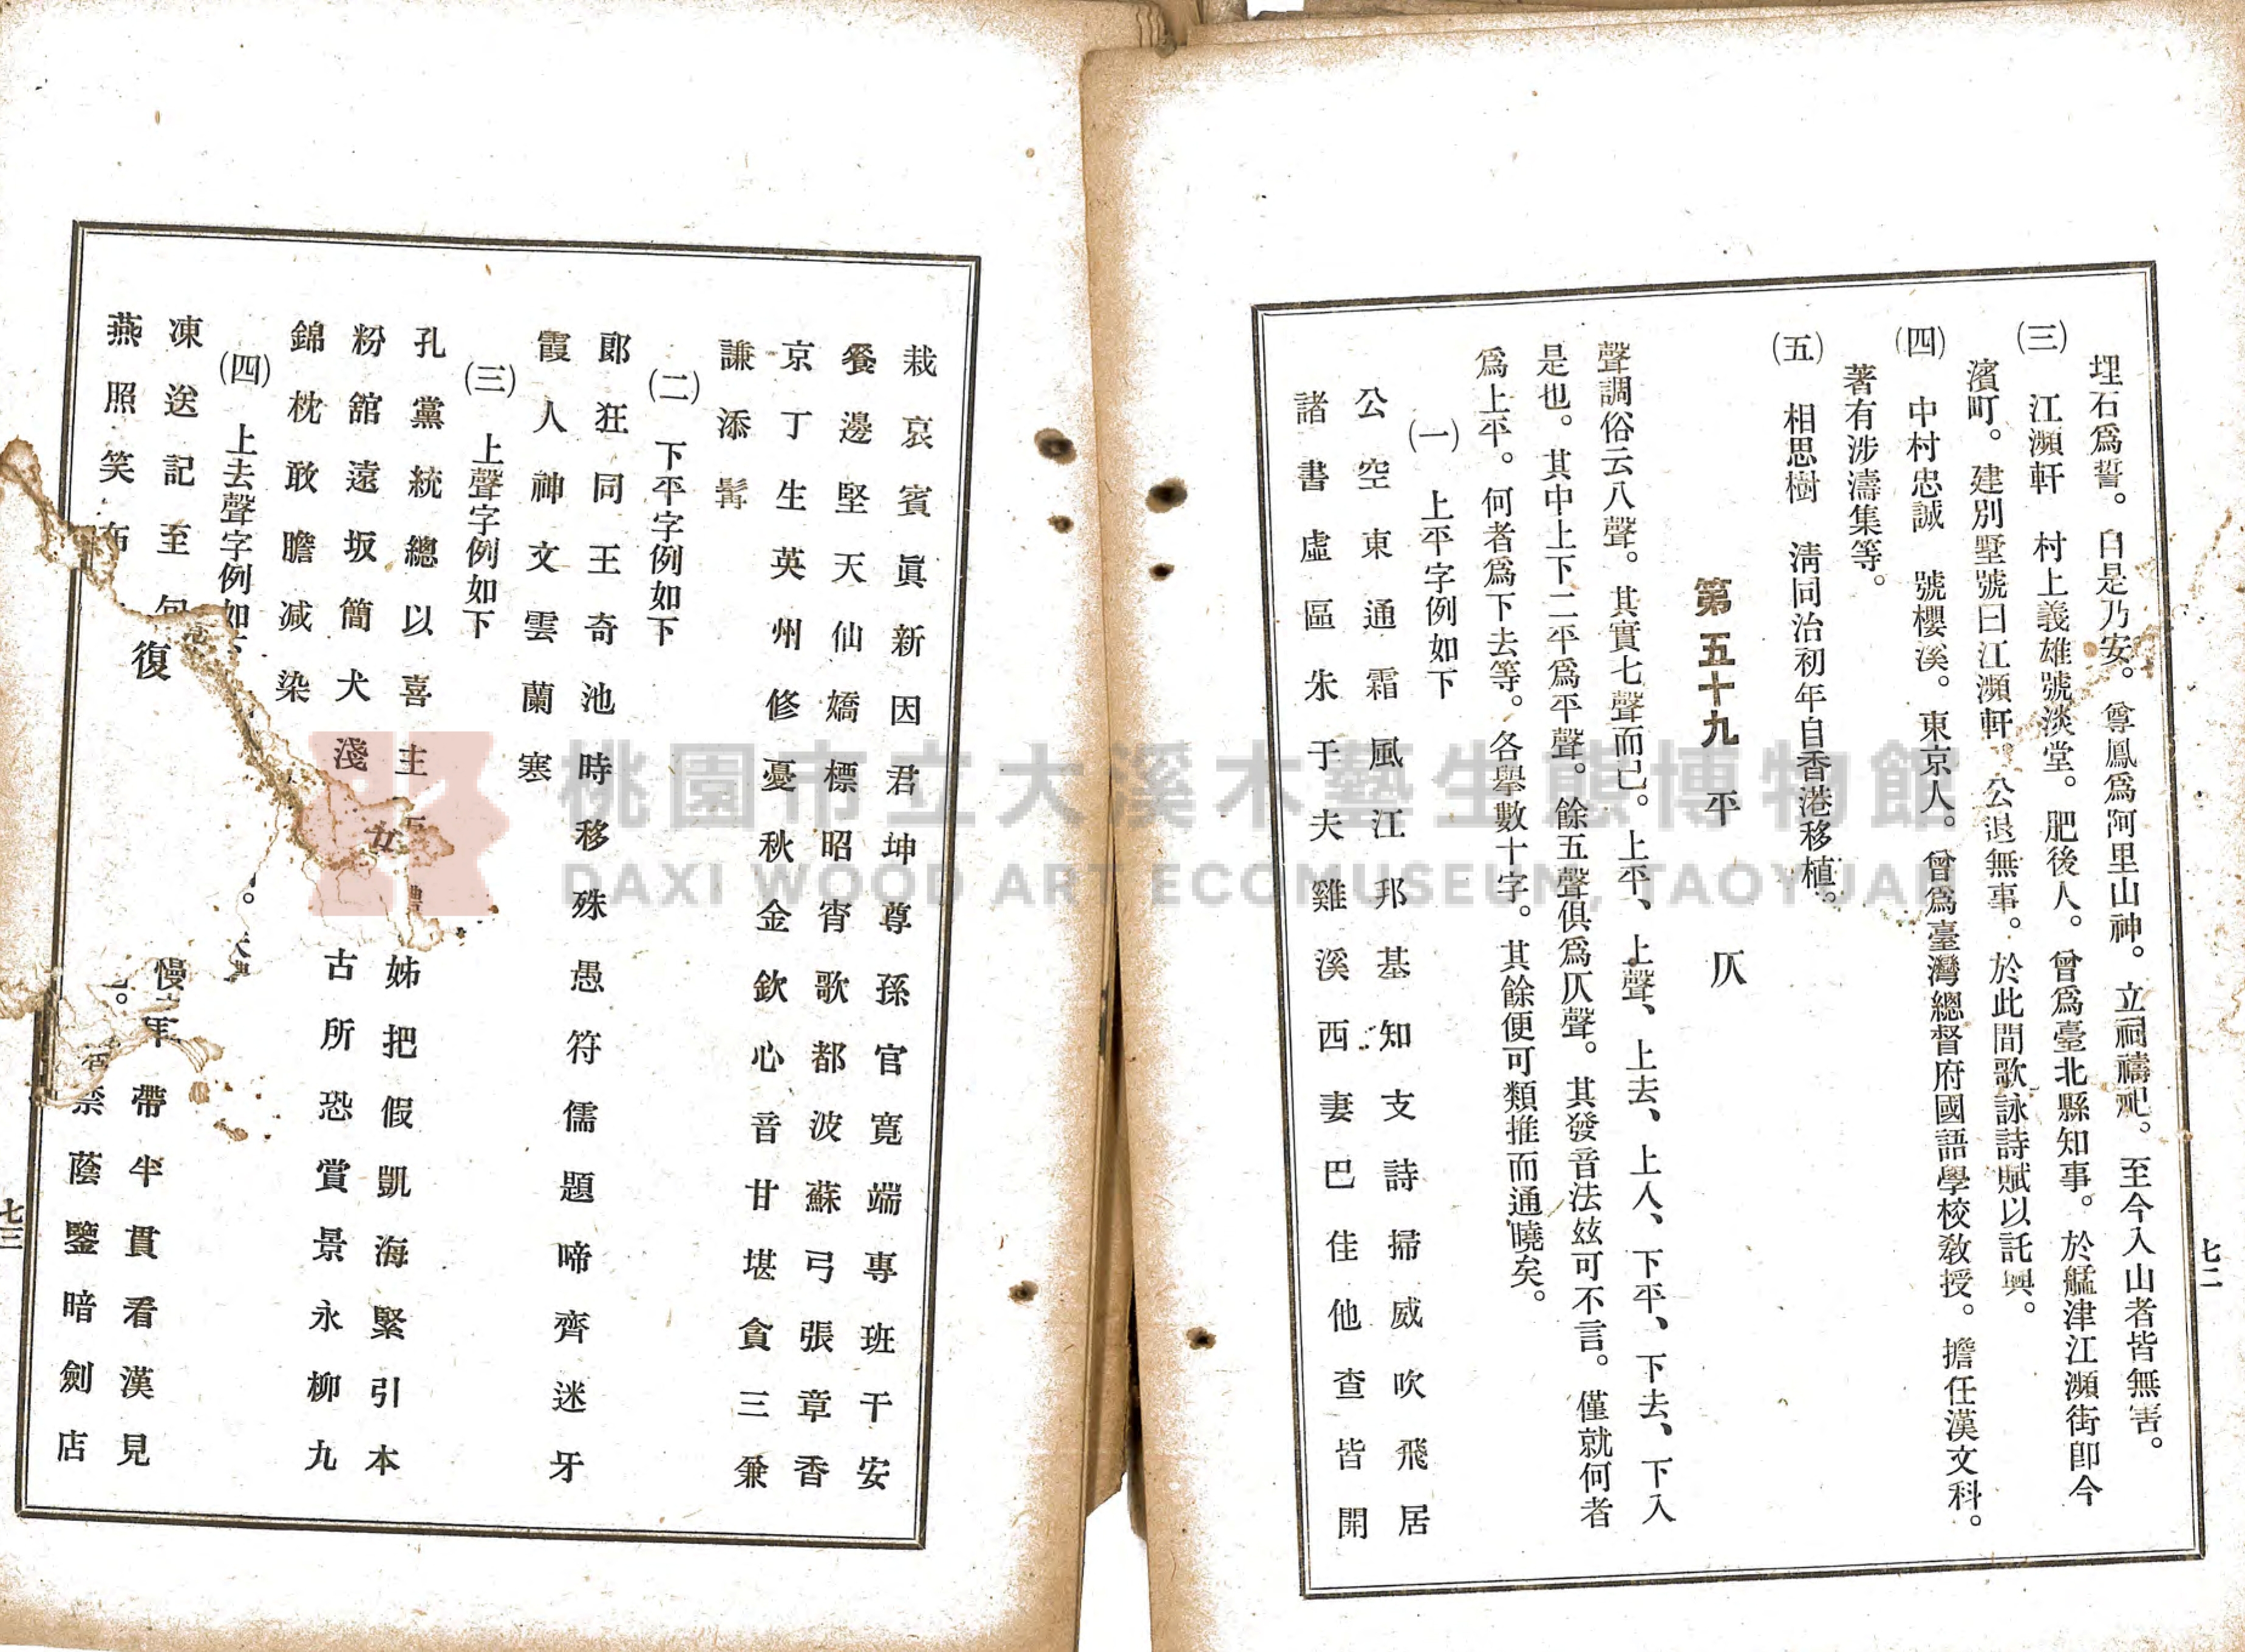 埋石爲誓。自是乃安。尊鳳爲阿里山神。立祠禱祀。至今入山者皆無害。
㈢ 江瀕軒 村上義雄號淡堂。肥後人。曾爲臺北縣知事。於艋津江瀕街卽今
濱町。建別墅號曰江瀕軒。公退無事。於此間歌詠詩賦以託興。
㈣ 中村忠誠 號櫻溪。東京人。曾爲臺灣總督府國語學校教授。擔任漢文科。
著有涉濤集等。
㈤ 相思樹 淸同治初年自香港移植。
第五十九 平 仄
聲調俗云八聲。其實七聲而已。上平、上聲、上去、上入、下平、下去、下入
是也。其中上下二平爲平聲。餘五聲俱爲仄聲。其發音法玆可不言。僅就何者
爲上平。何者爲下去等。各擧數十字。其餘便可類推而通曉矣。
㈠ 上平字例如下
公空東通霜風江邦基知支詩掃威吹飛居
諸書虛區朱于夫雞溪西妻巴佳他查皆開
七二
栽哀賓眞新因君坤尊孫官寬端專班干安
餐邊堅天仙嬌標昭宵歌都波蘇弓張章香
京丁生英州修憂秋金欽心音甘堪貪三兼
謙添髯
㈡ 下平字例如下
郞狂同王奇池時移殊愚符儒題啼齊迷牙
霞人神文雲蘭寒
㈢ 上聲字例如下
孔黨統總以喜主女姊把假凱海緊引本
粉舘遠坂簡犬淺古所恐賞景永柳九
錦枕敢膽減染
㈣ 上去聲字例如下
凍送記至復慢帶半貫看漢見
燕照笑布禁蔭鑒暗劍店
七三
桃園市立大溪木藝生態博物館
DAXI WOOD ART ECOMUSEUM, TAOYUAN